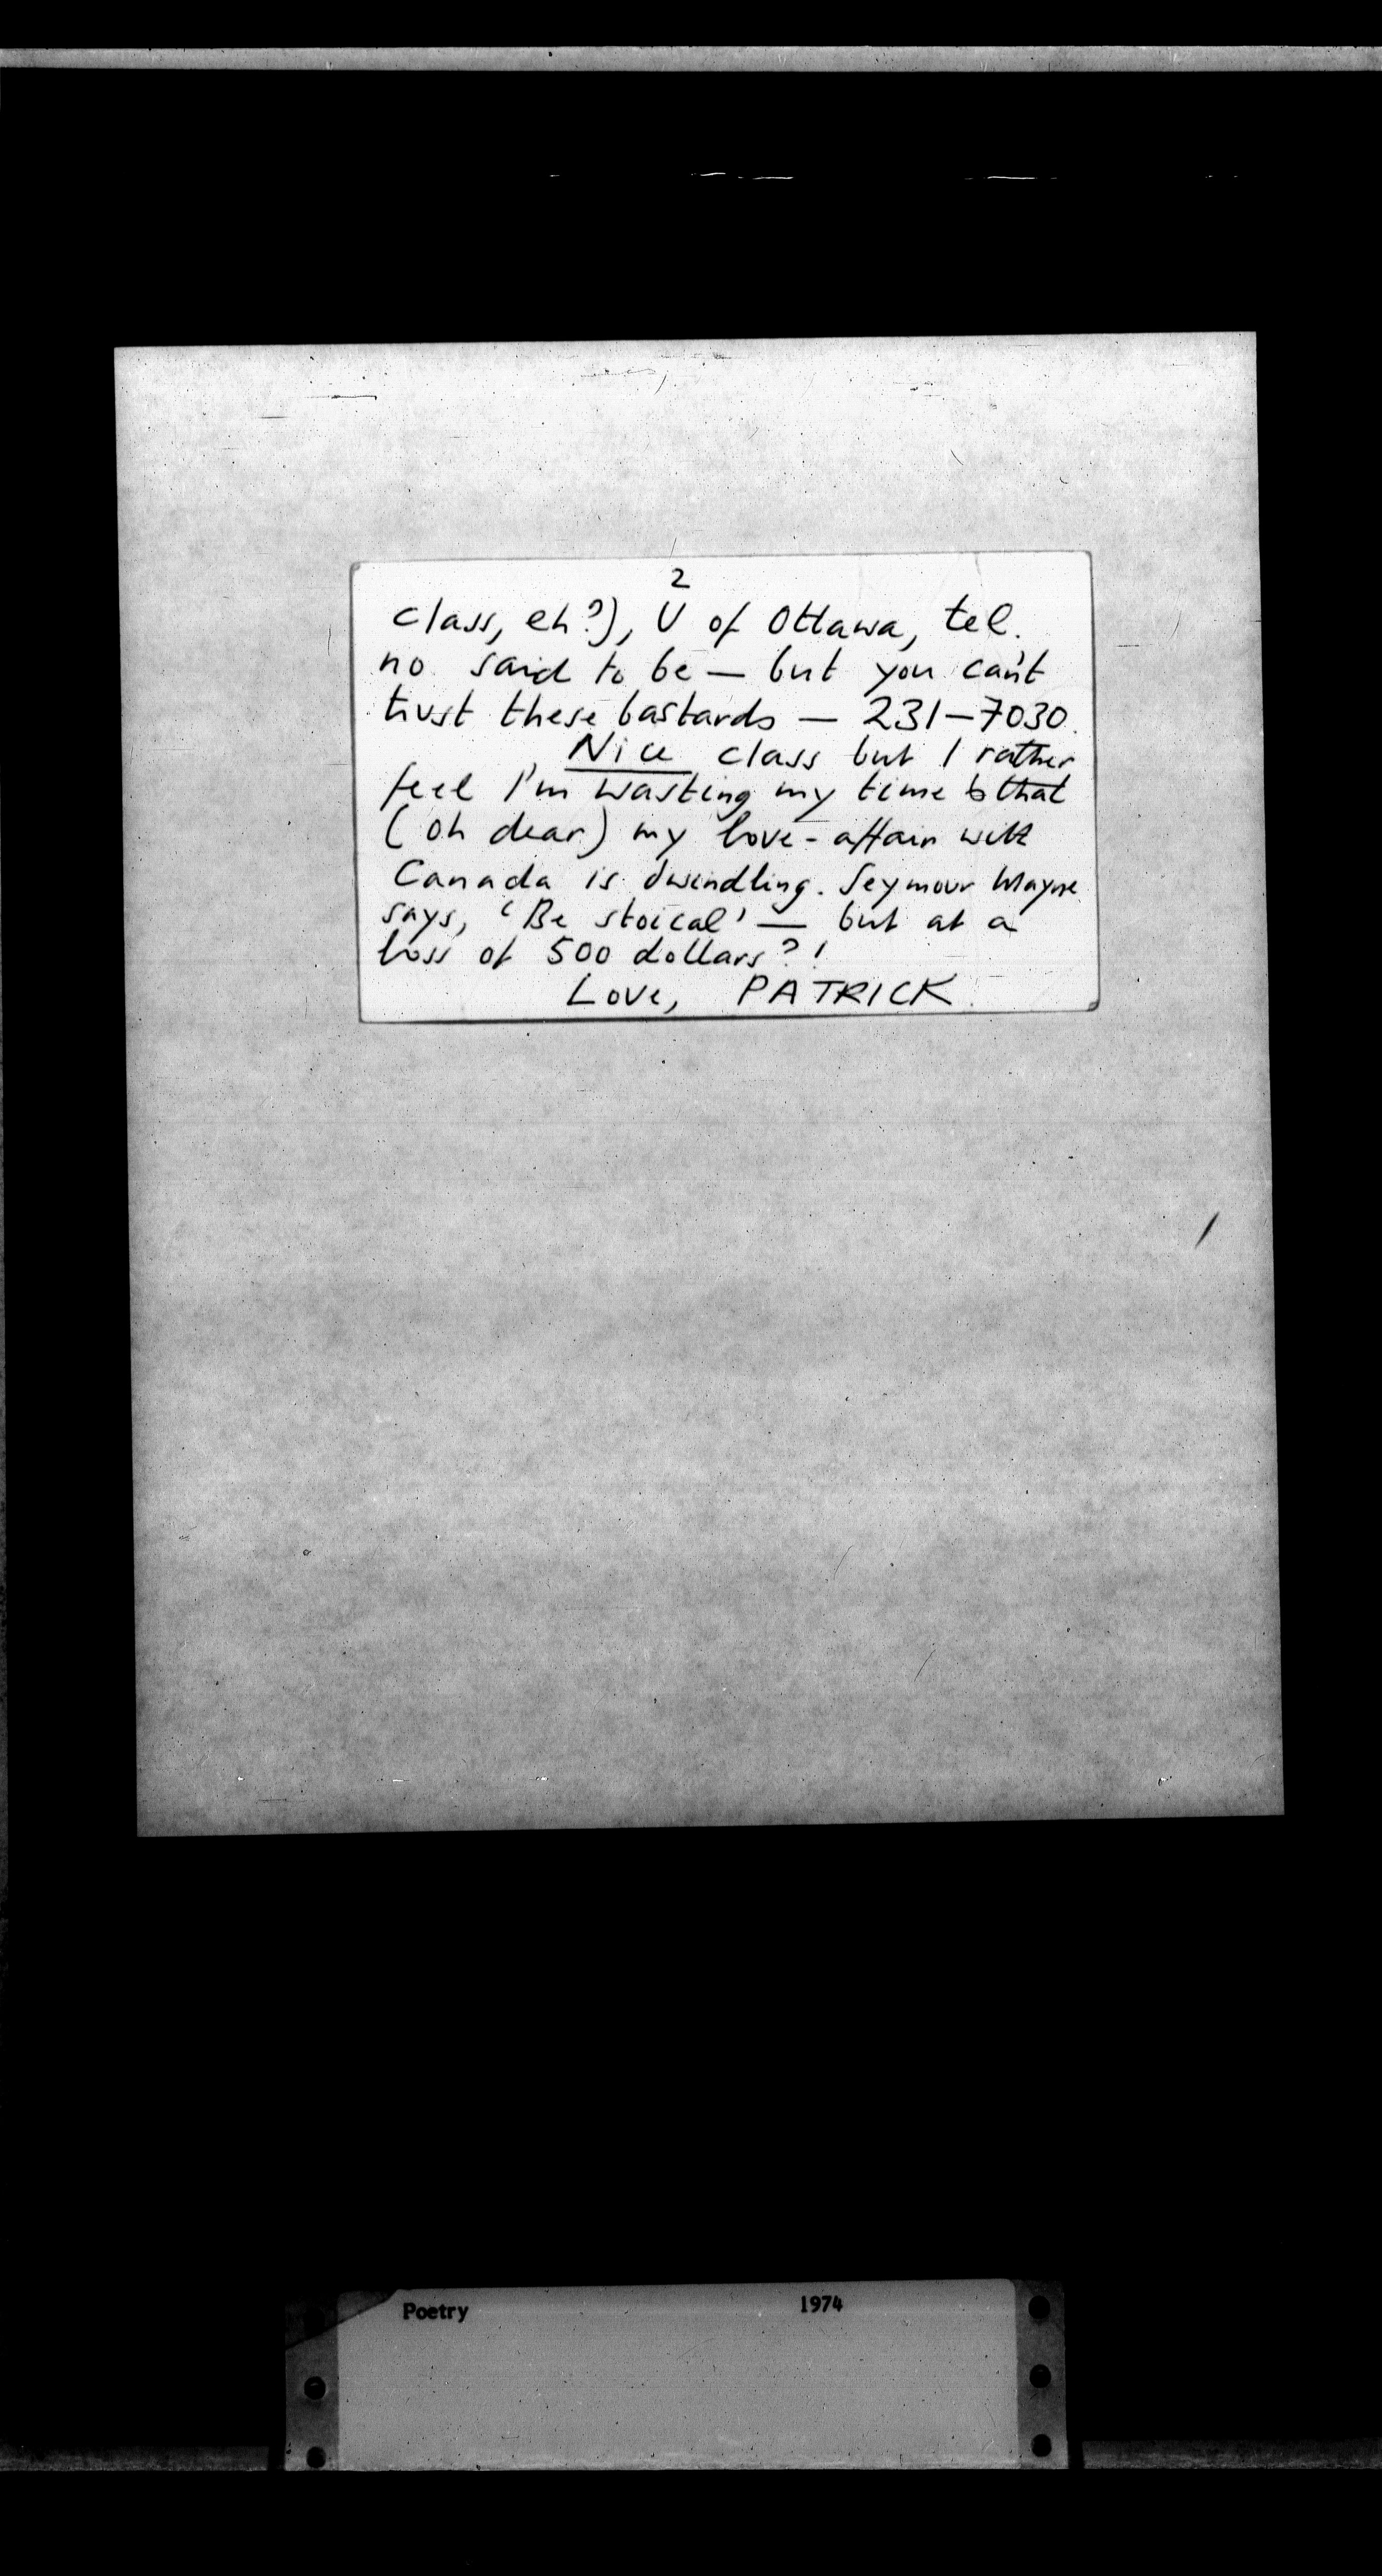 2
class, eh?), U of Ottawa, tel.
no said to be — but you can't
trust these bastards — 231-7030.
Nice class but I rather
feel I'm wasting my time & that
(oh dear) my love-affair with
Canada is dwindling. Seymour Mayne
says, 'Be stoical' — but at a
loss of 500 dollars?!
Love, PATRICK.
Poetry 1974